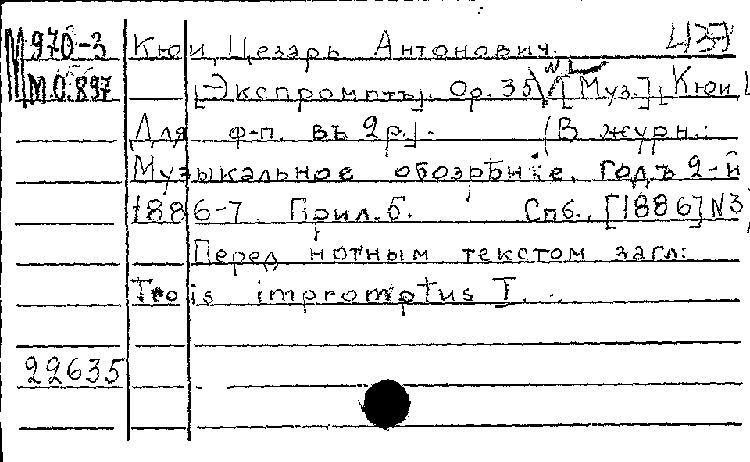 М970-3 Кюи, Цезарь Антонович. 437
М.О.897 [Экспромптъ]. Ор. 35 № 1 [Муз.] [Кюи
Для ф-п. въ 2р.]. (В журн.:
Музыкальное обозрѣніе. Годъ 2-й
1886-7. Прил. 5. Спб., [1886] № 3)
Перед нотным текстом загл:
Trois impromptus I...
22635